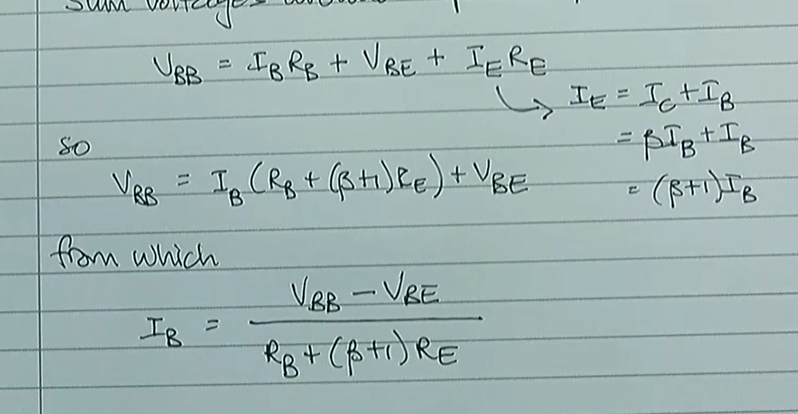 sum voltages
V_BB = I_B R_B + V_BE + I_E R_E
↳ I_E = I_C + I_B
= βI_B + I_B
= (β+1)I_B
so
V_BB = I_B (R_B + (β+1)R_E) + V_BE
from which
I_B = (V_BB − V_BE) / (R_B + (β+1)R_E)